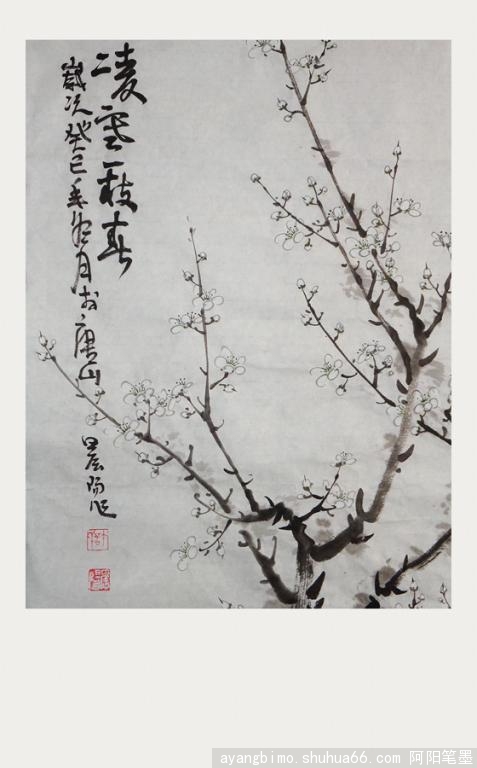 凌雲一枝春
歲次癸巳年冬月於唐山
晨阳作
ayangbimo.shuhua66.com 阿阳笔墨